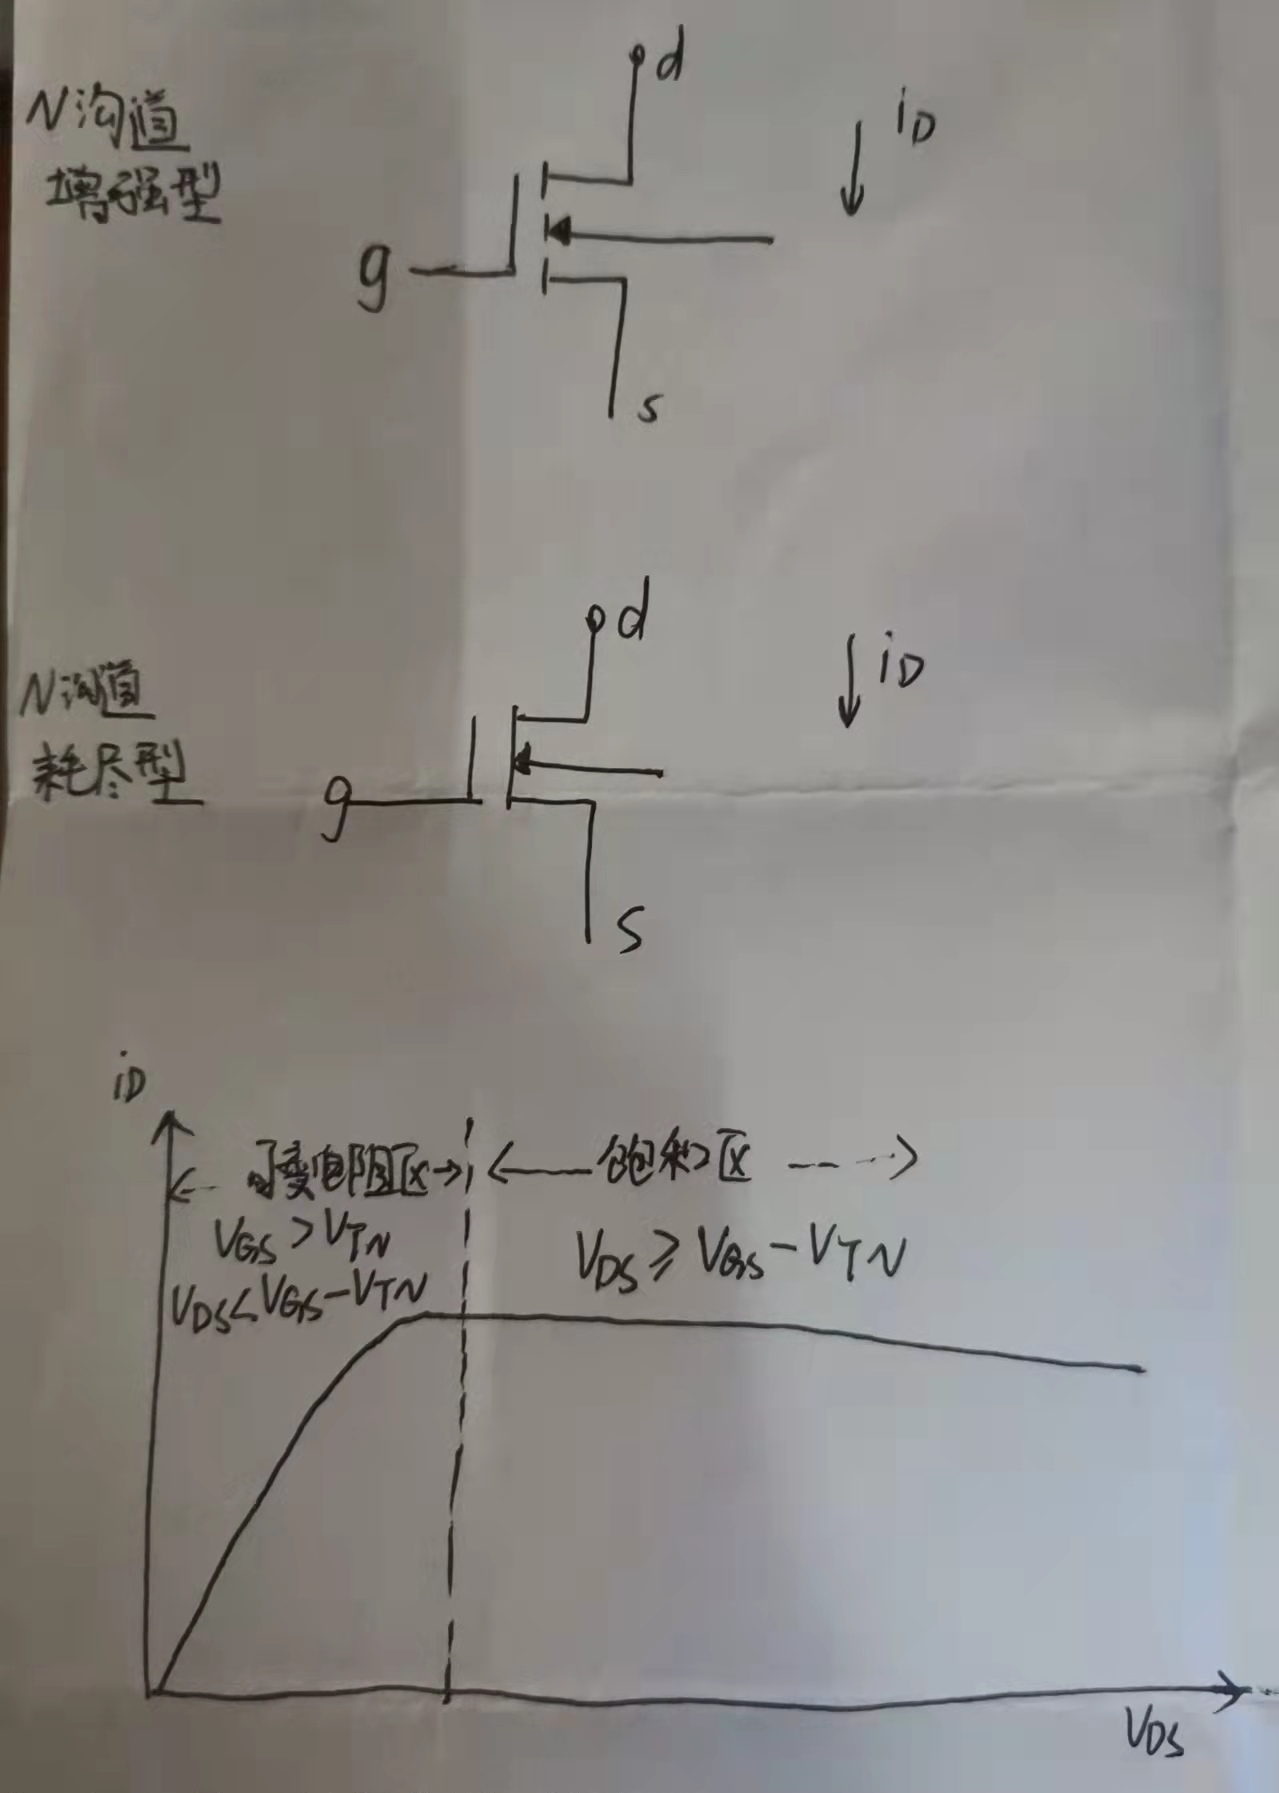 N沟道
增强型
d
iD
g
s
N沟道
耗尽型
d
iD
g
S
iD
可变电阻区
饱和区
VGS > VTN
VDS < VGS - VTN
VDS ≥ VGS - VTN
VDS